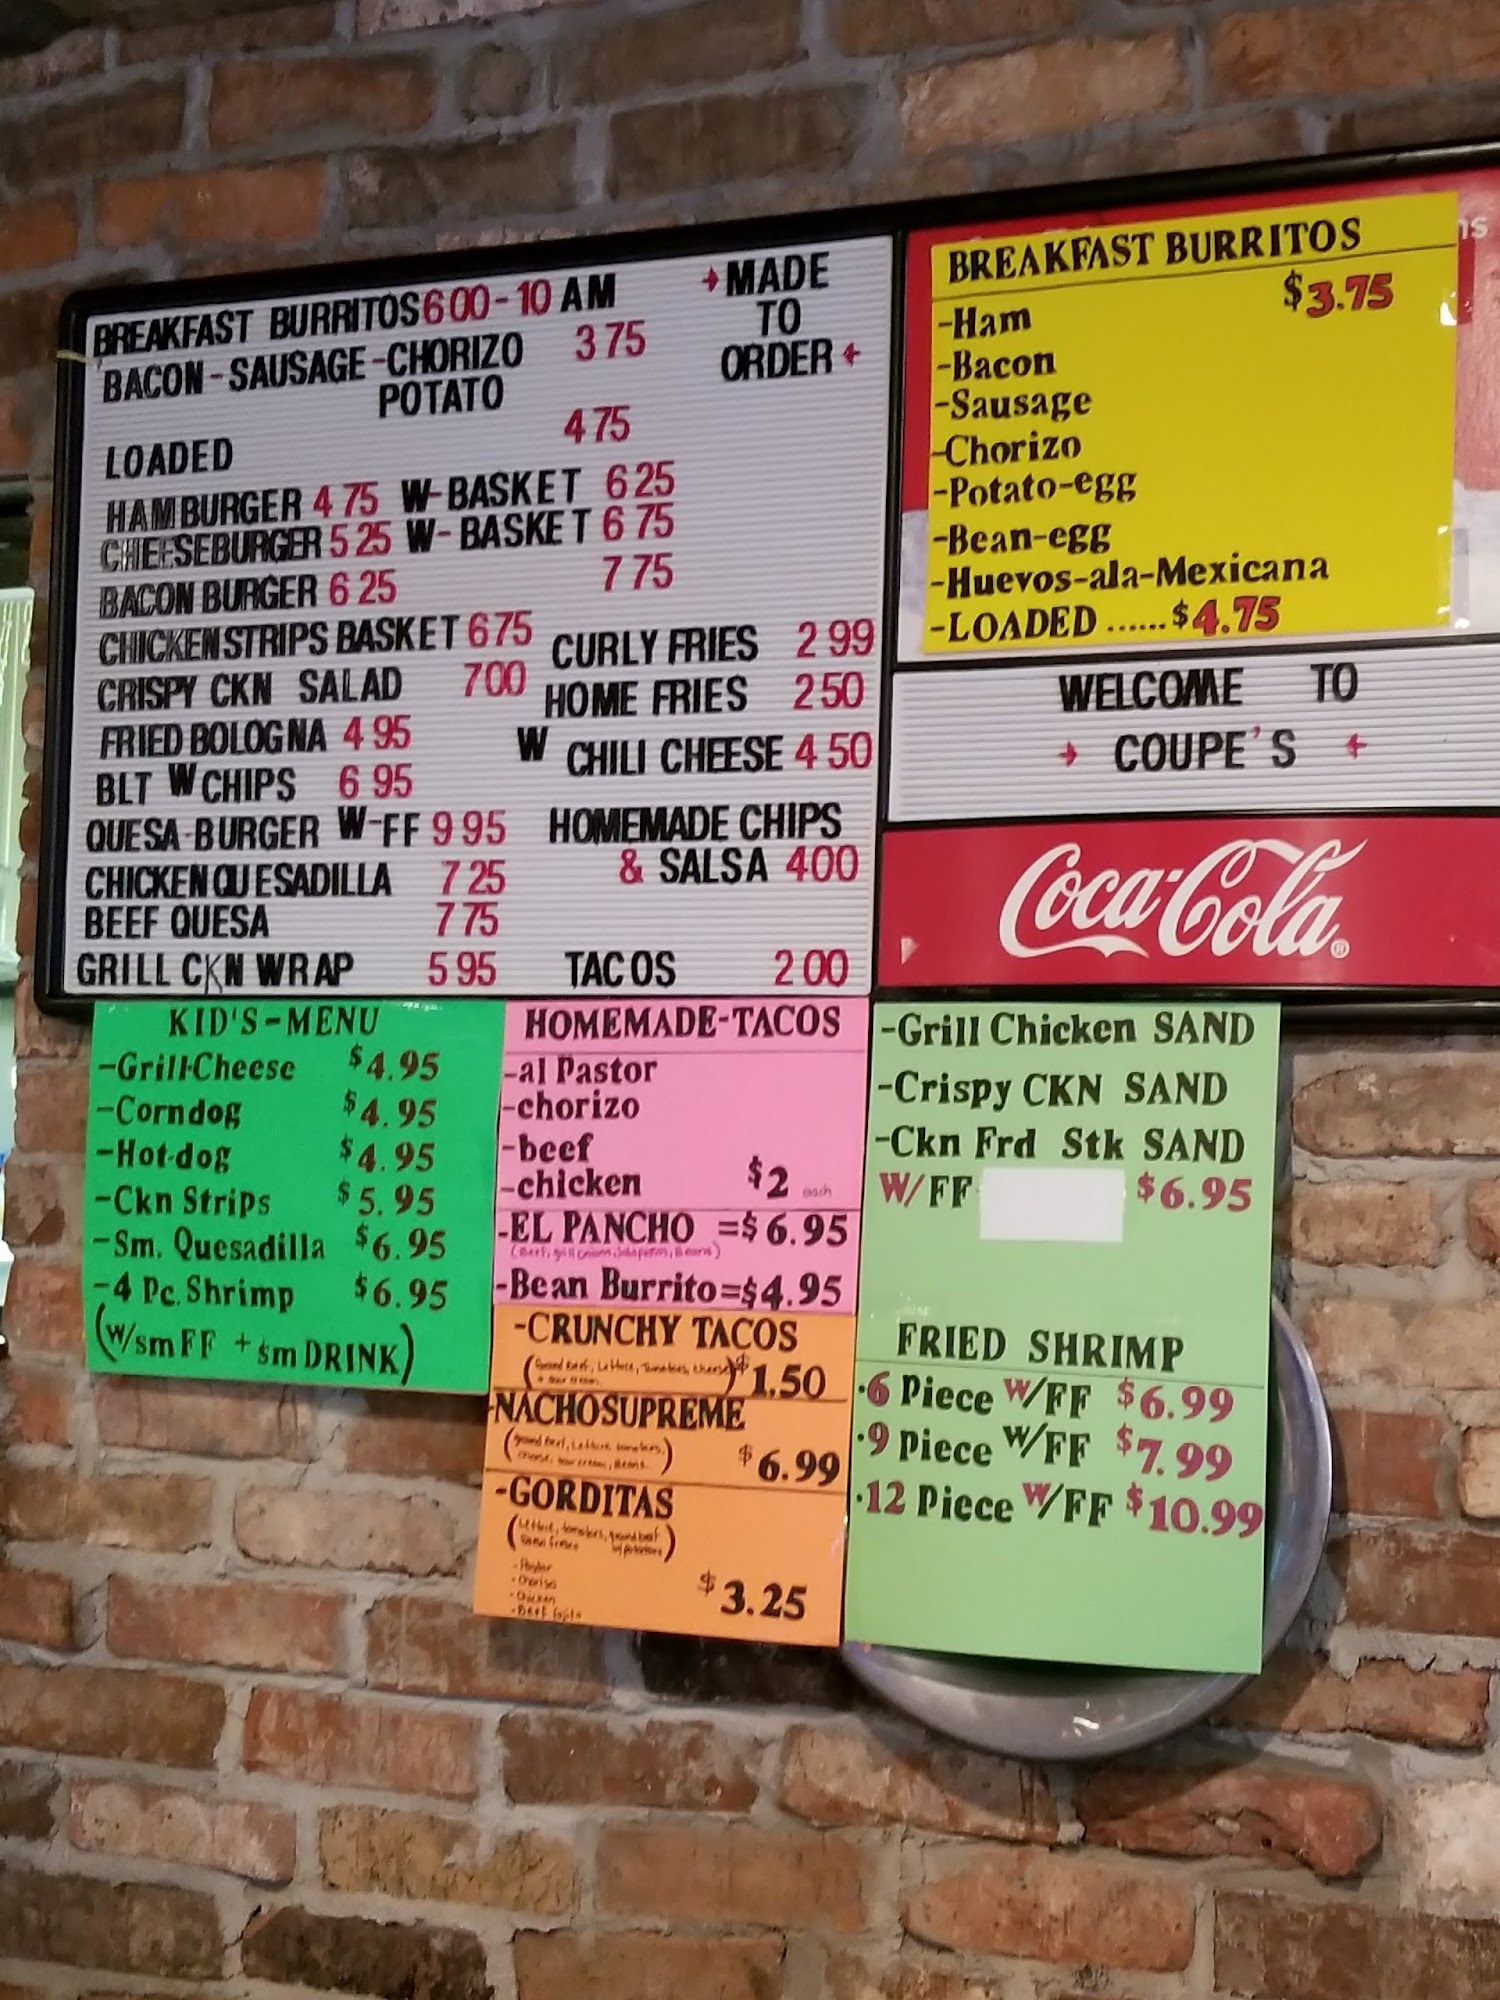 BREAKFAST BURRITOS 6 00 - 10 AM
BACON - SAUSAGE - CHORIZO 3 75
POTATO
LOADED 4 75
MADE
TO
ORDER
HAMBURGER 4 75 W- BASKET 6 25
CHEESEBURGER 5 25 W- BASKET 6 75
BACON BURGER 6 25 7 75
CHICKEN STRIPS BASKET 6 75
CRISPY CKN SALAD 7 00
FRIED BOLOGNA 4 95
BLT W CHIPS 6 95
QUESA-BURGER W-FF 9 95
CHICKEN QUESADILLA 7 25
BEEF QUESA 7 75
GRILL CKN WRAP 5 95
CURLY FRIES 2 99
HOME FRIES 2 50
W CHILI CHEESE 4 50
HOMEMADE CHIPS
& SALSA 4 00
TACOS 2 00
BREAKFAST BURRITOS
$3.75
-Ham
-Bacon
-Sausage
-Chorizo
-Potato-egg
-Bean-egg
-Huevos-ala-Mexicana
-LOADED ......$4.75
WELCOME TO
COUPE'S
Coca-Cola®
KID'S-MENU
-Grill-Cheese $4.95
-Corndog $4.95
-Hot-dog $4.95
-Ckn Strips $5.95
-Sm. Quesadilla $6.95
-4 Pc. Shrimp $6.95
(w/sm FF + sm DRINK)
HOMEMADE-TACOS
-al Pastor
-chorizo
-beef
-chicken $2 each
-EL PANCHO =$6.95
(Beef, grill onions, Jalapeños, Beans)
-Bean Burrito=$4.95
-CRUNCHY TACOS
(Ground Beef, Lettuce, Tomatoes, cheese $1.50
+ sour cream)
-NACHOSUPREME
(ground Beef, Lettuce, tomatoes,
cheese, sour cream, Beans) $6.99
-GORDITAS
(Lettuce, tomatoes, ground beef
queso fresco w/potatoes)
-Pastor
-Chorizo
-Chicken
-Beef fajita
$3.25
-Grill Chicken SAND
-Crispy CKN SAND
-Ckn Frd Stk SAND
W/FF $6.95
FRIED SHRIMP
·6 Piece W/FF $6.99
·9 Piece W/FF $7.99
·12 Piece W/FF $10.99